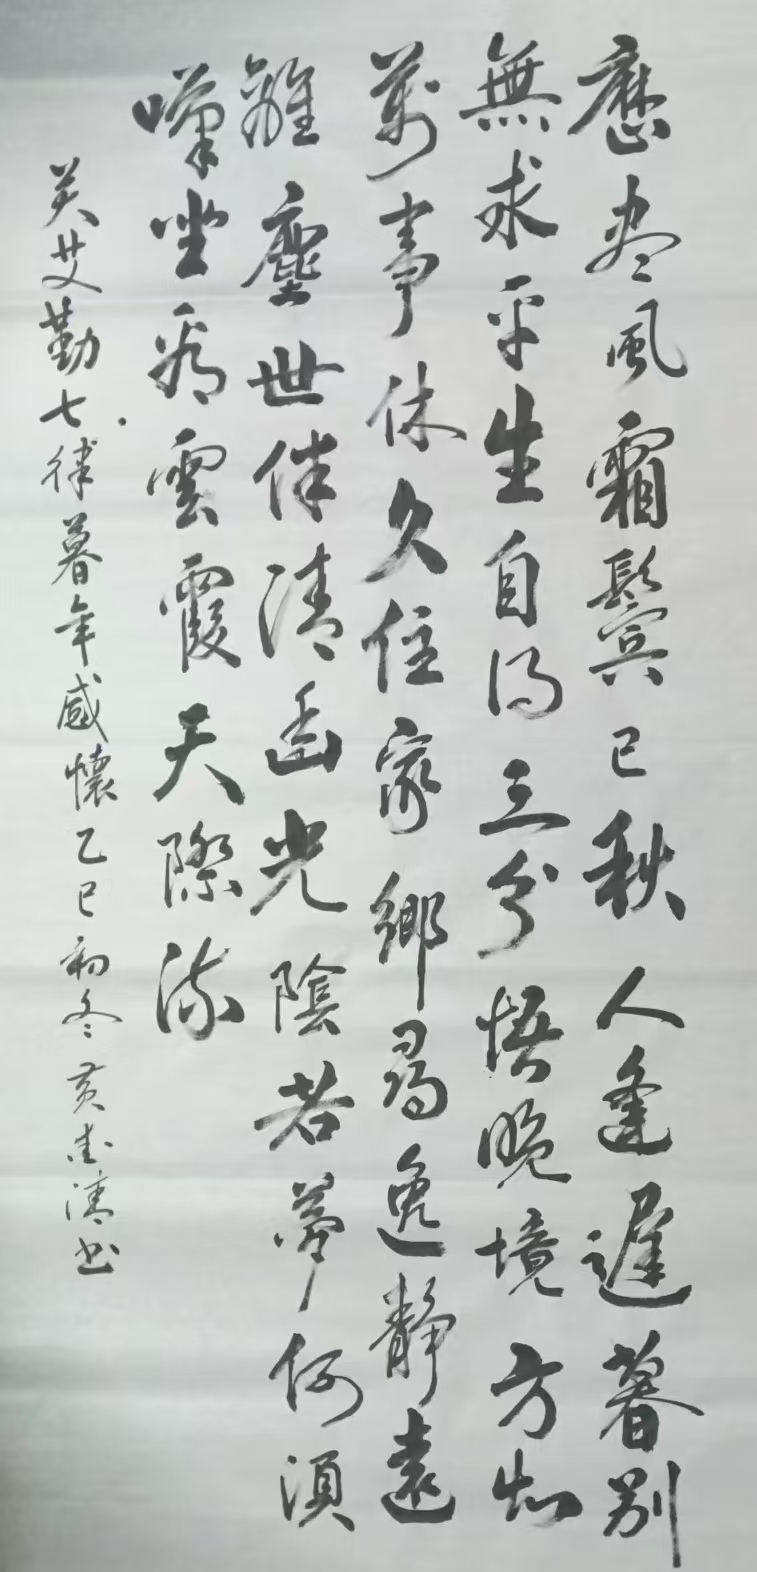 歷尽風霜鬓已秋人逢遲暮别
無求平生自得三分悟晚境方知
萬事休久住家鄉尋逸静遠
離塵世伴清幽光陰若夢何須
嘆坐看雲霞天際流
吴艾勤七律暮年感懷乙巳初冬黄志清书